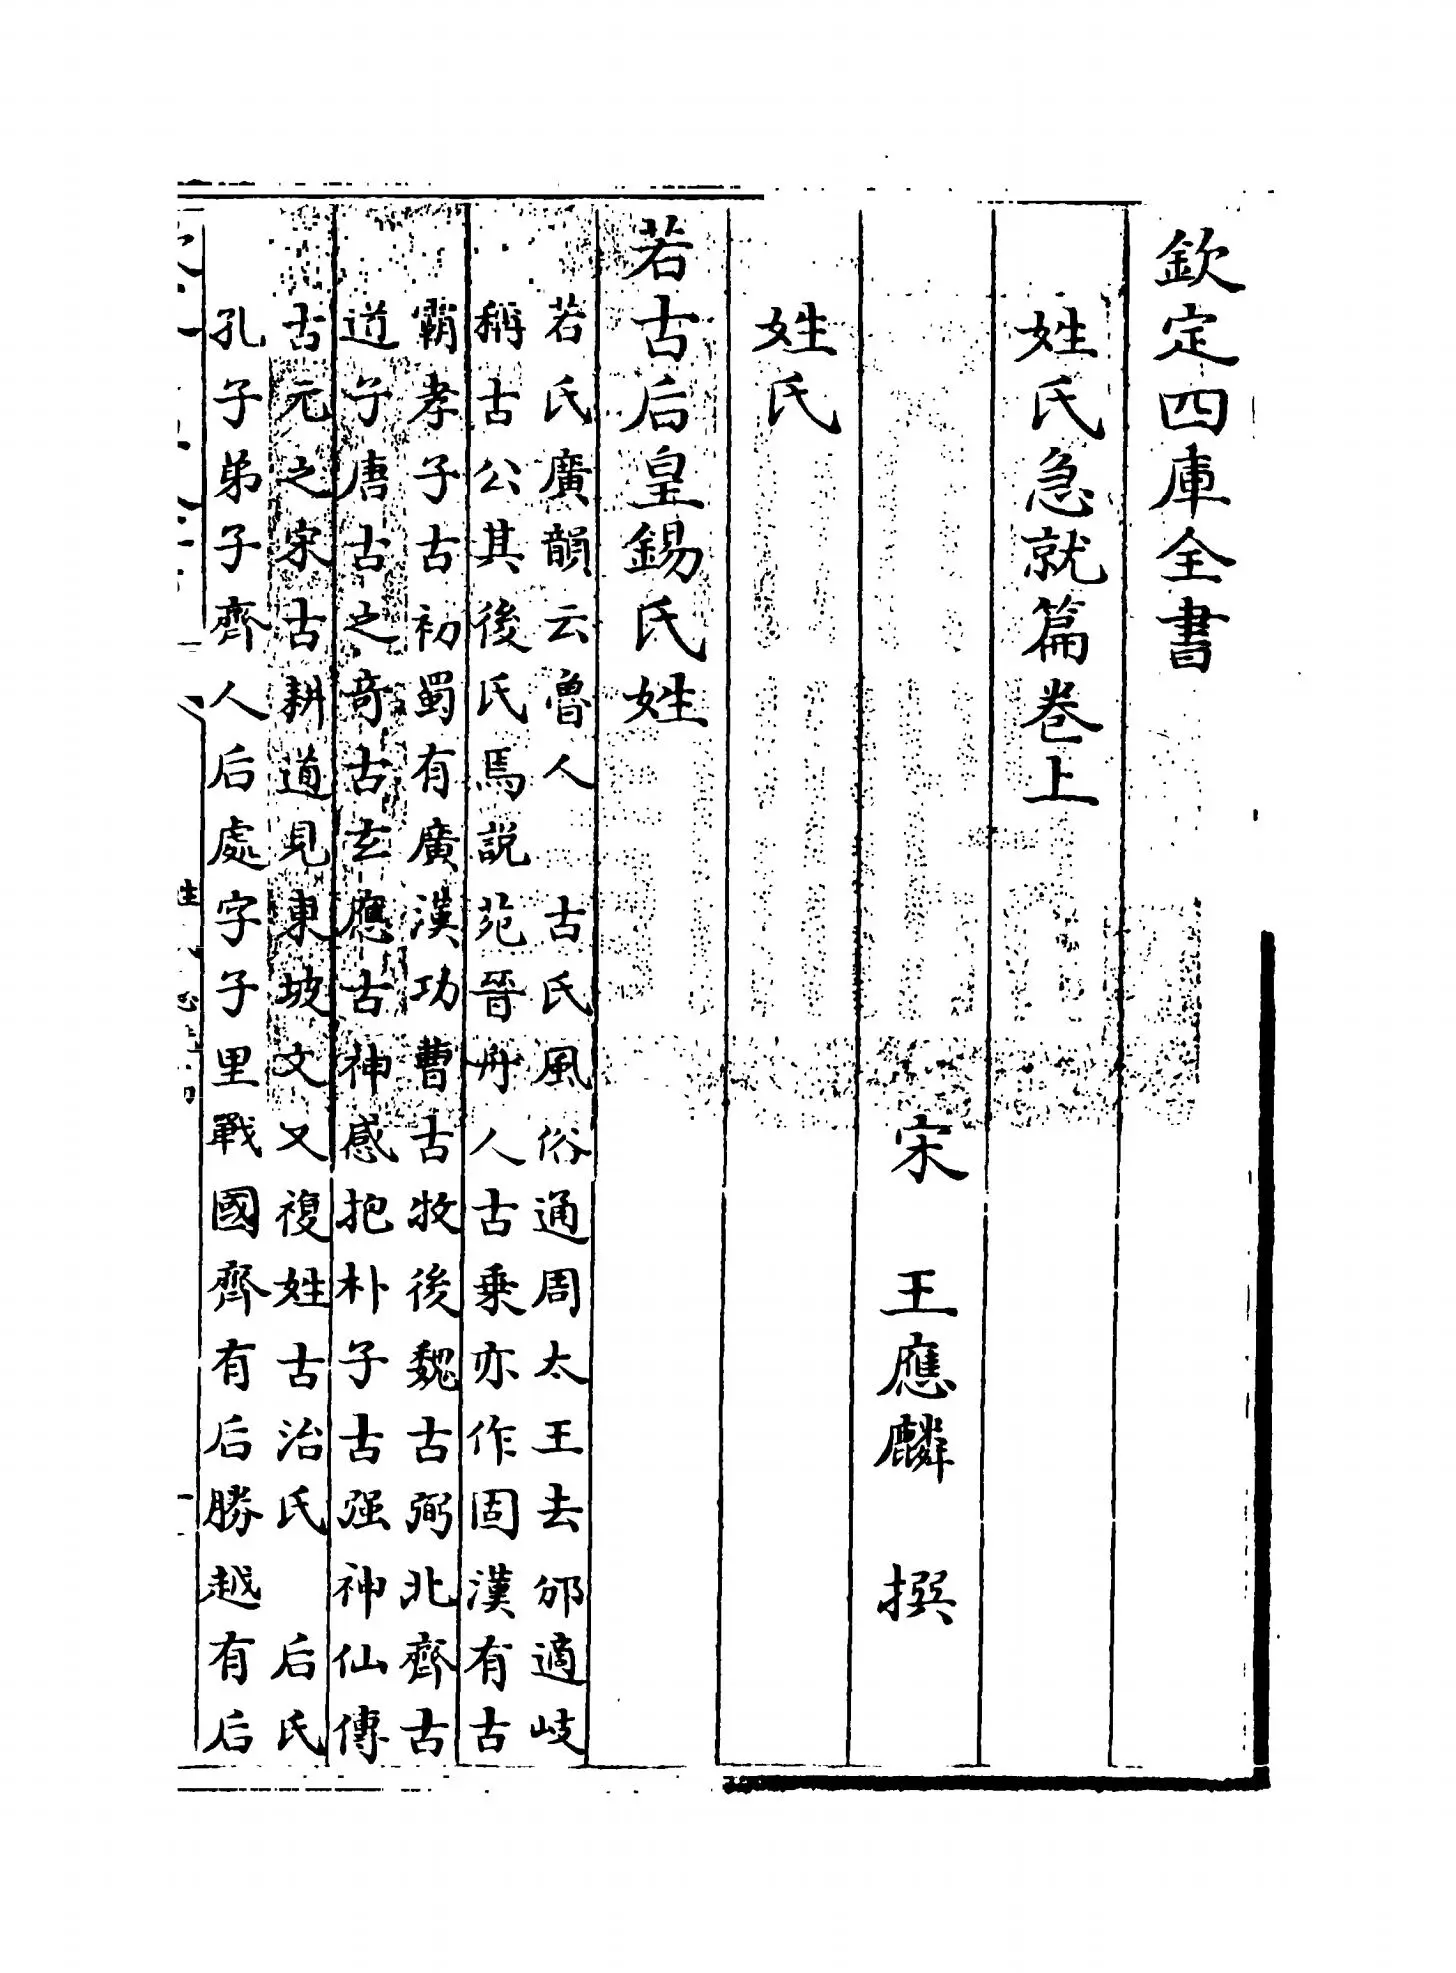 欽定四庫全書
姓氏急就篇卷上
宋 王應麟 撰
姓氏
若古后皇錫氏姓
若氏廣韻云魯人 古氏風俗通周太王去邠適岐
稱古公其後氏焉說苑晉舟人古乗亦作固漢有古
霸孝子古初蜀有廣漢功曹古牧後魏古弼北齊古
道子唐古之竒古玄應古神感抱朴子古强神仙傳
古元之宋古耕道見東坡文又複姓古治氏 后氏
孔子弟子齊人后處字子里戰國齊有后勝越有后